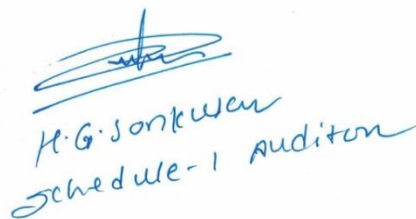 H.G. Sonkusew
Schedule-1 Auditor